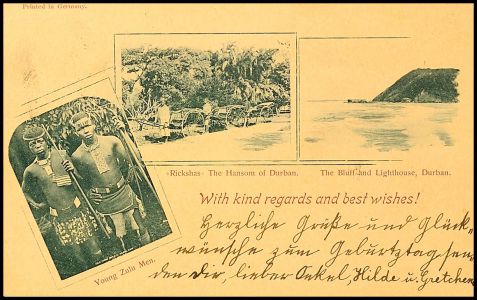 Printed in Germany.
«Rickshas» The Hansom of Durban.
The Bluff and Lighthouse, Durban.
Young Zulu Men.
With kind regards and best wishes!
Herzliche Grüße und Glück-
wünsche zum Geburtstag sen-
den Dir, lieber Onkel, Hilde u. Gretchen